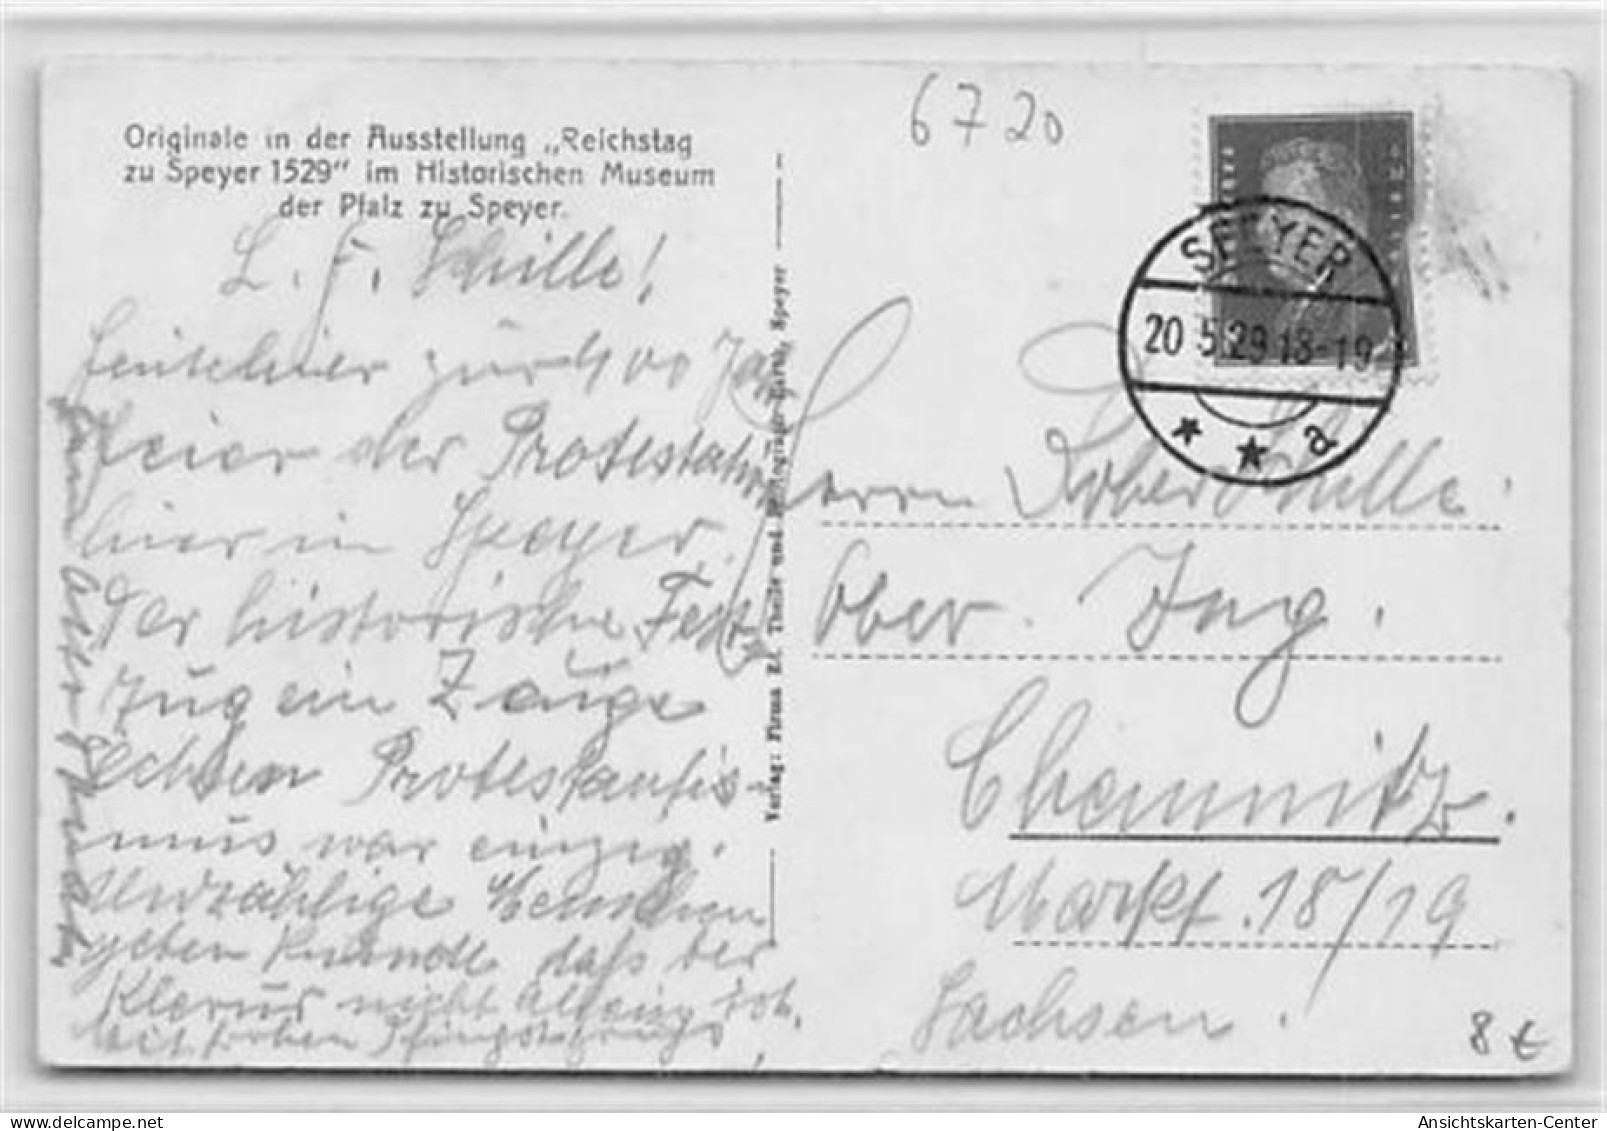 Originale in der Ausstellung „Reichstag
zu Speyer 1529" im Historischen Museum
der Pfalz zu Speyer.
L. F. Schille!
zur 400 Jahr
feier der Protestation
hier in Speyer.
Der historische Fest
zug ein Zeuge
echten Protestantis-
mus war einzig.
Unzählige Menschen
geben Kunde dass der
Klerus nicht allein ist.
Mit frohen Pfingstgruß
Verlag: Firma Ed. Theile und Speyer
6720
SPEYER
20 5 29 18-19
* * a
Herrn Robert Schille.
Ober. Ing.
Chemnitz.
Markt. 18/19
Sachsen.
8 €
www.delcampe.net
Ansichtskarten-Center